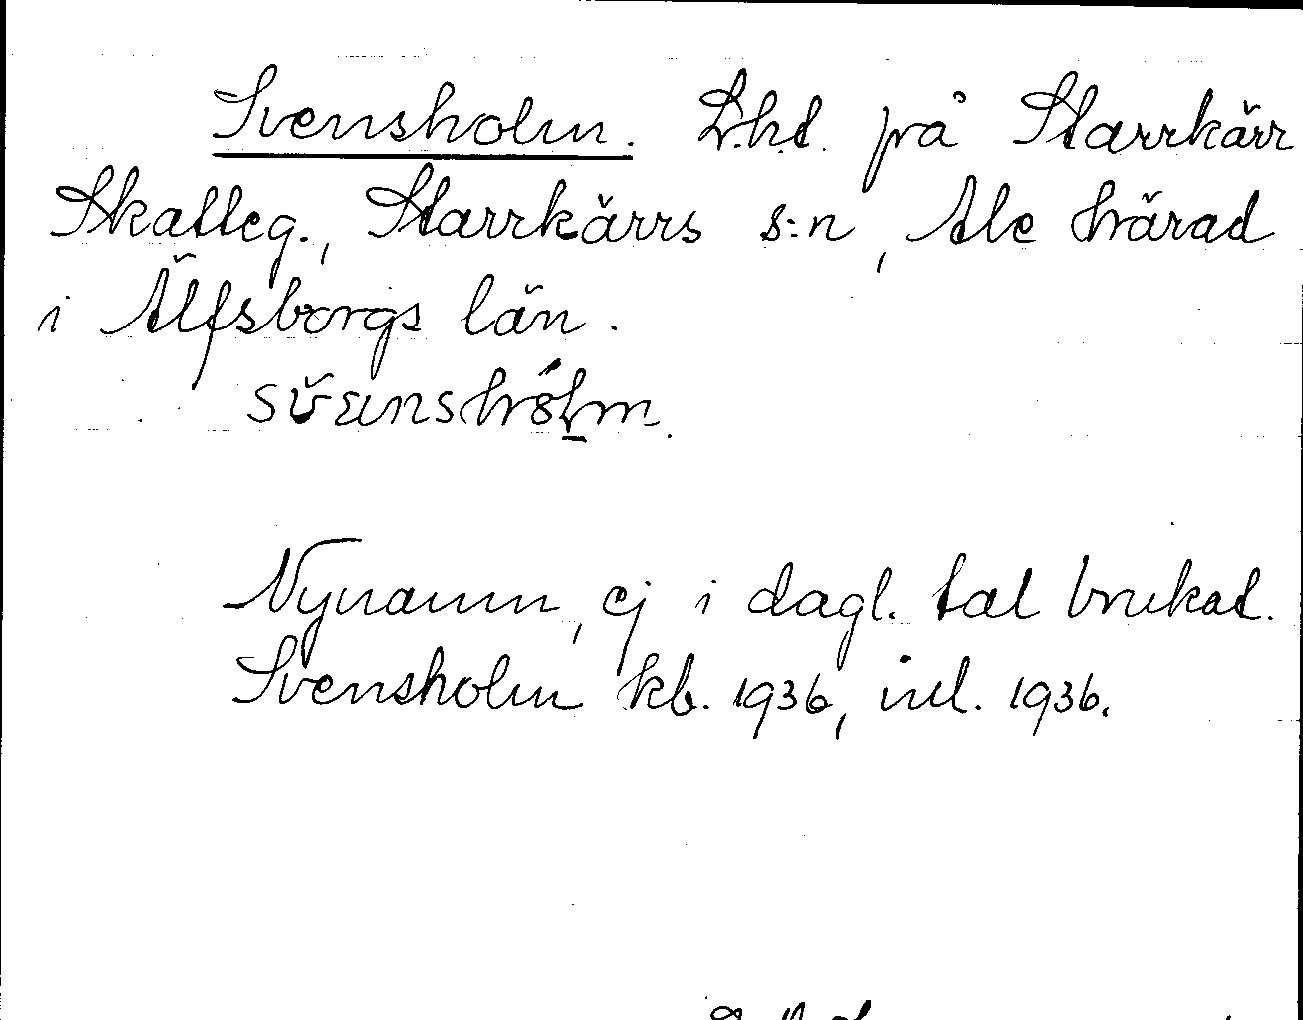 Svensholm. Lht. på Starrkärr
Skatteg., Starrkärrs s:n, Ale härad
i Älfsborgs län.
Nynamn, ej i dagl. tal brukat.
Svensholm kb. 1936, inl. 1936.